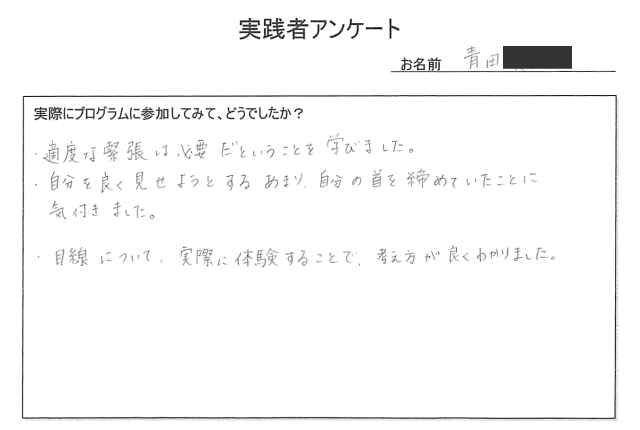 実践者アンケート
お名前 青田
実際にプログラムに参加してみて、どうでしたか？
・適度な緊張は必要だということを学びました。
・自分を良く見せようとするあまり、自分の首を締めていたことに
気付きました。
・目線について、実際に体験することで、考え方が良くわかりました。